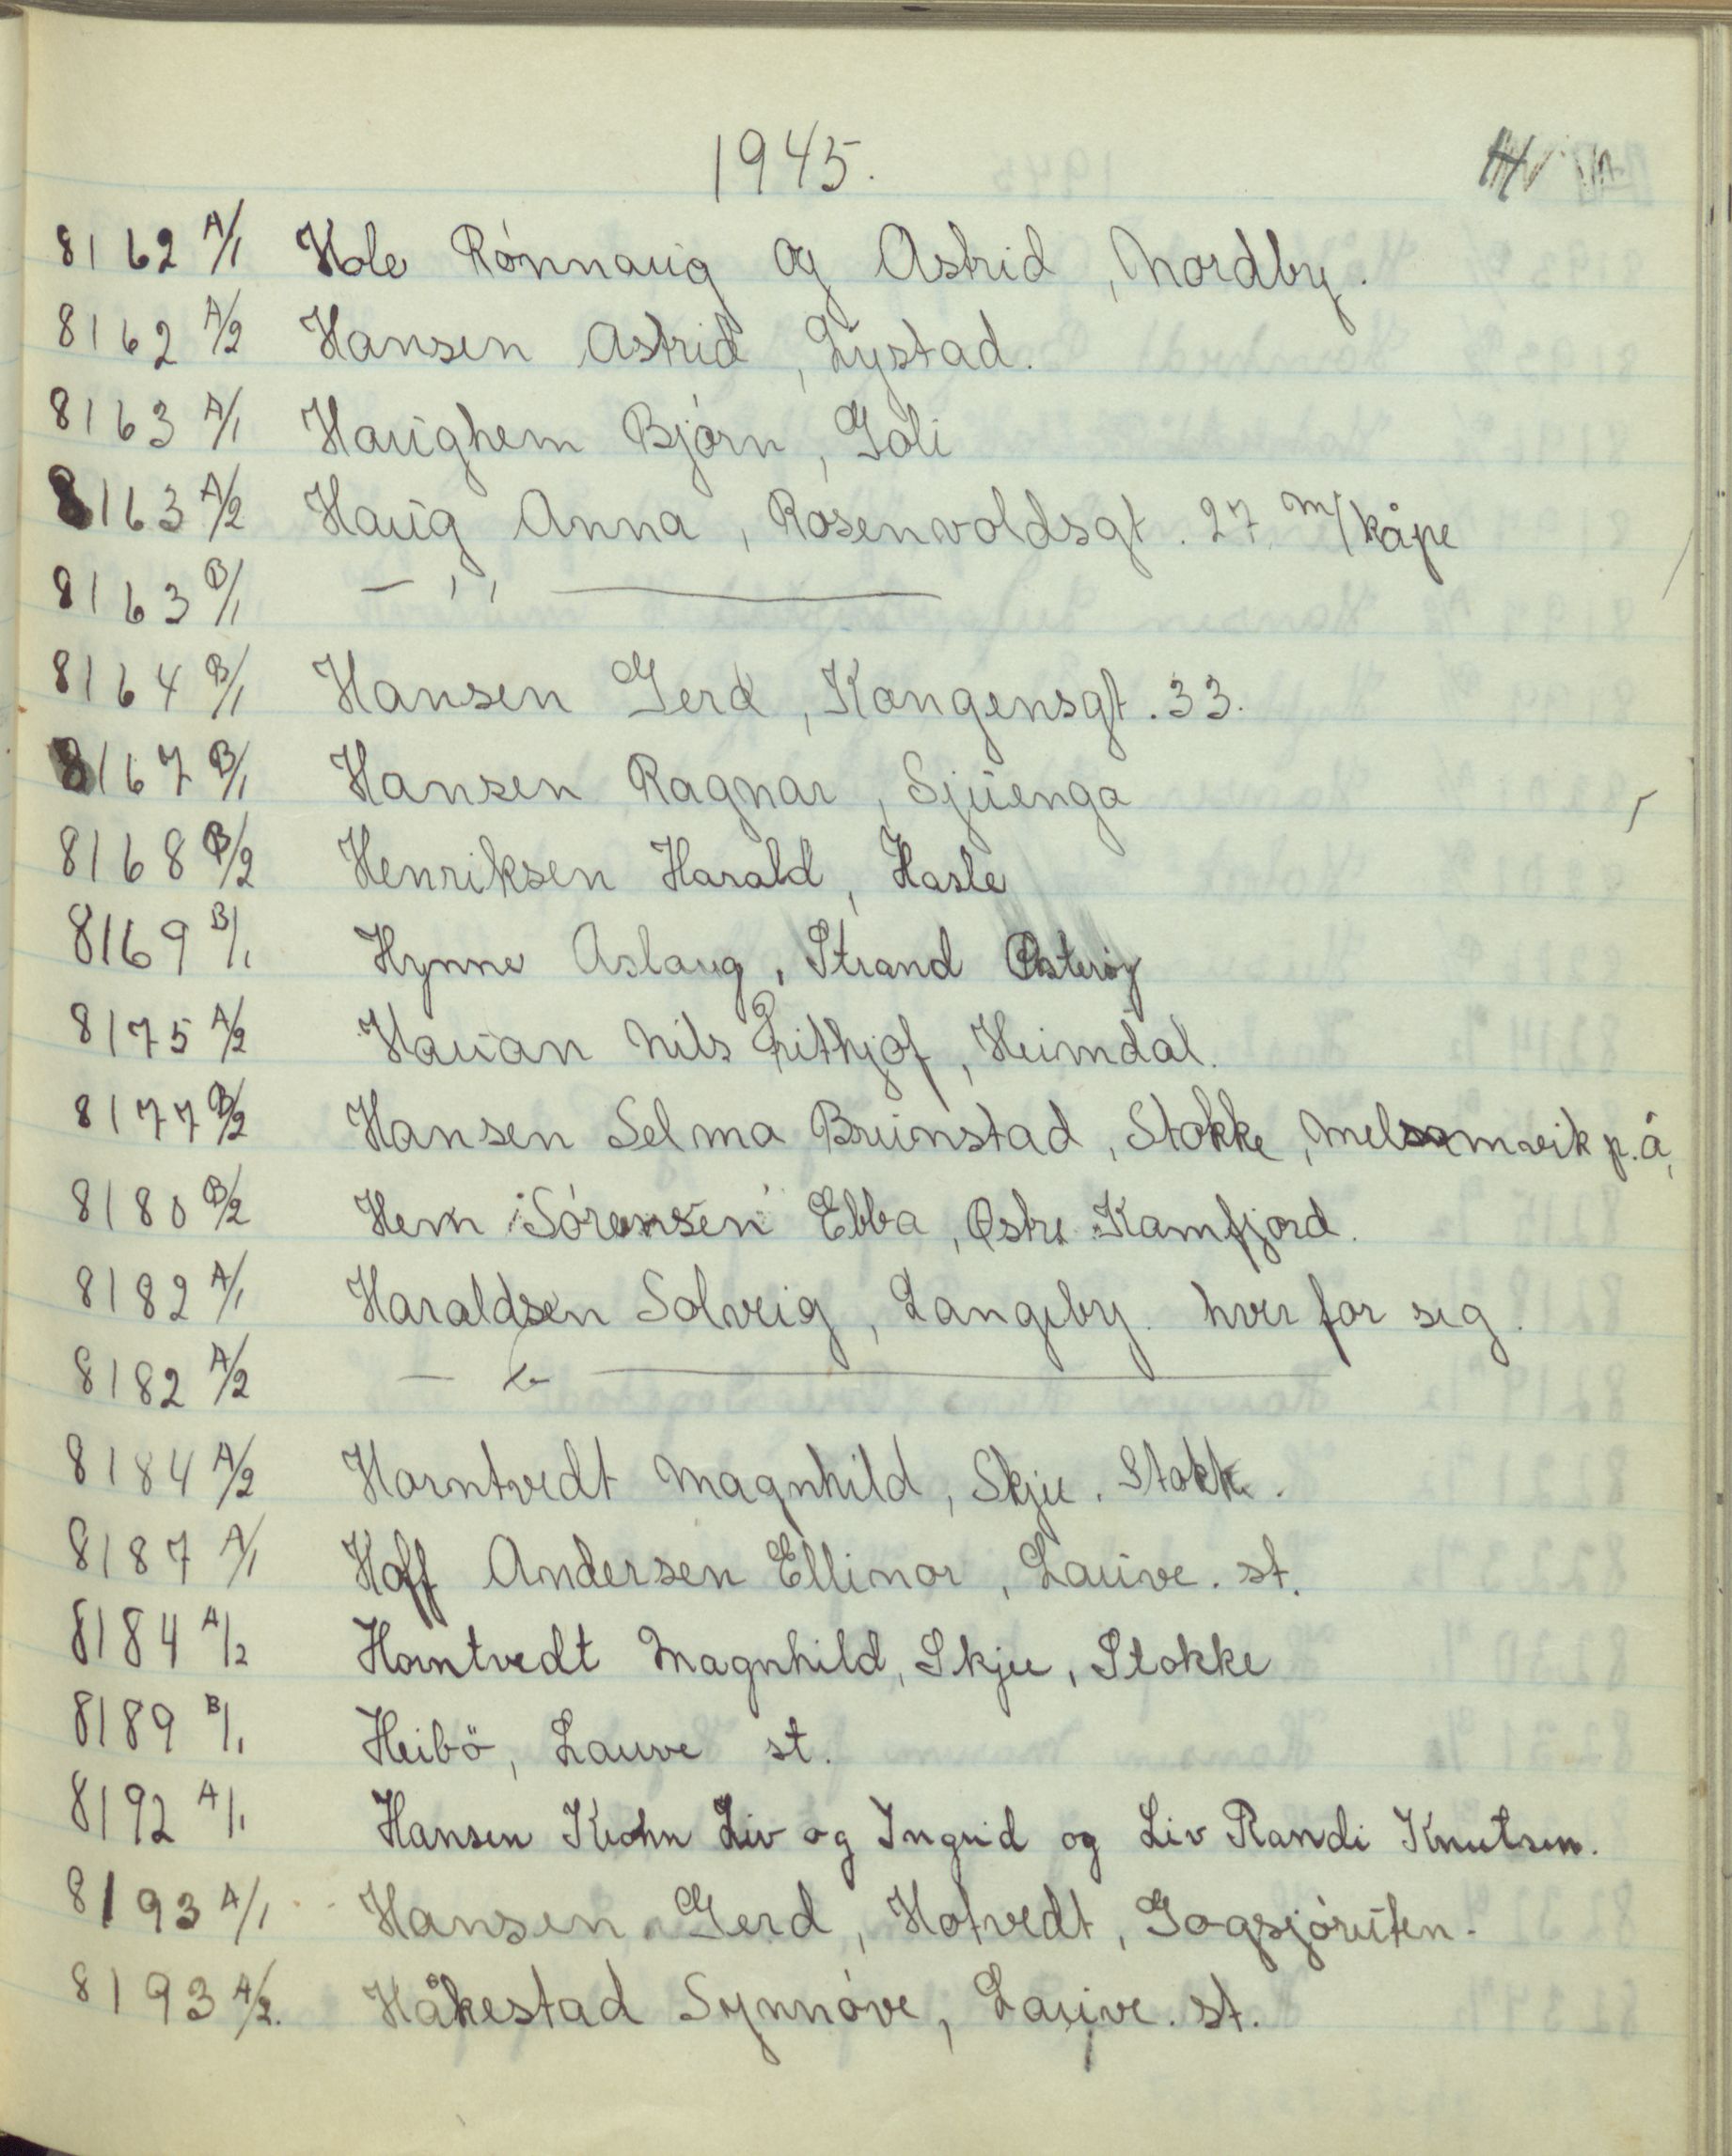 1945.
8162 A/1 Hole Rónnaug og Astrid, Nordby.
8162 A/2 Hansen Astrid, Lystad.
8163 A/1 Haughem Bjórn, Góli
8163 A/2 Haug Anna, Rosenvoldsgt. 27. m/kåpe
8163 B/1 — ,, —
8164 B/1 Hansen Gerd, Kongensgt. 33.
8167 B/1 Hansen Ragnar, Sjuenga
8168 B/2 Henriksen Harald, Hasle
8169 B/1 Hynne Aslaug, Strand Østerøy
8175 A/2 Hauan Nils Frithjof, Heimdal.
8177 B/2 Hansen Selma Brunstad, Stokke, Melsomvik p.å,
8180 B/2 Hem Sórensen Ebba, Østre Kamfjord.
8182 A/1 Haraldsen Solveig, Langeby. hver for seg.
8182 A/2 — —
8184 A/2 Horntvedt Magnhild, Skjee. Stokke.
8187 A/1 Hoff Andersen Ellinor, Lauve. st.
8184 A/2 Horntvedt Magnhild, Skjee, Stokke
8189 B/1 Heibö, Lauve st.
8192 A/1 Hansen Krohn Liv og Ingrid og Liv Randi Knutsen.
8193 A/1 Hansen Gerd, Hotvedt, Gogsjóruten.
8193 A/2. Håkestad Synnóve, Lauve. st.